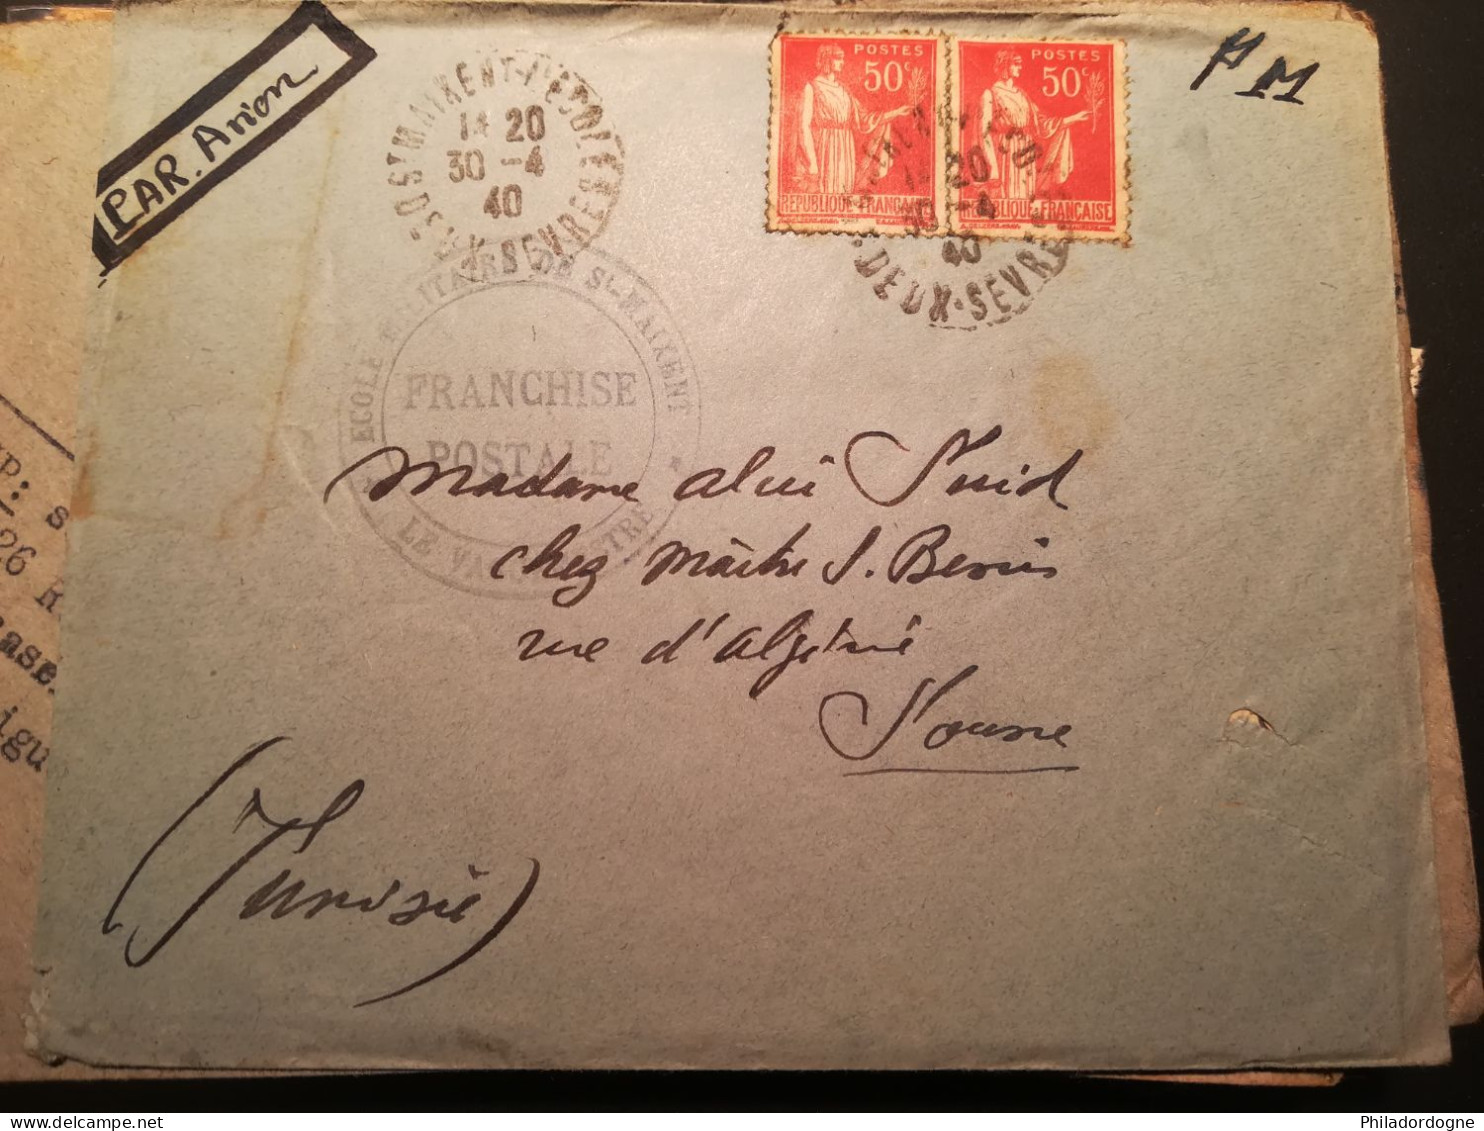 PAR. Avion
ST MAIXENT-L'ECOLE
14 20
30 -4
40
DEUX-SEVRES
POSTES
50c
REPUBLIQUE FRANÇAISE
POSTES
50c
REPUBLIQUE FRANÇAISE
20
30 -4
40
DEUX-SEVRES
ECOLE MILITAIRE DE St-MAIXENT
FRANCHISE
POSTALE
Madame
chez Maître S.
rue d'algérie
Sousse
(Tunisie)
26
Philadordogne